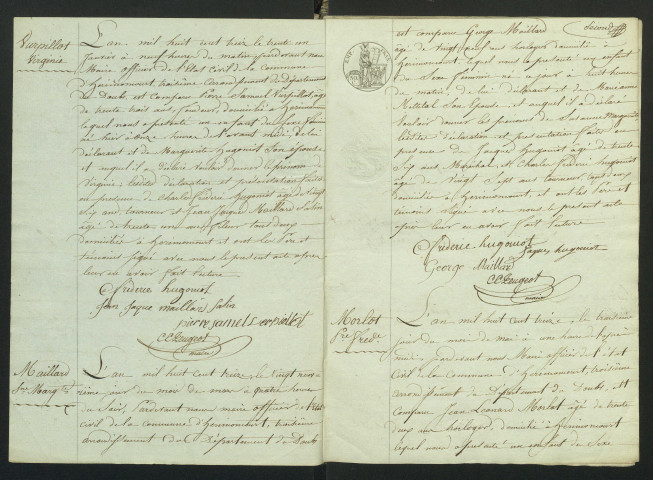 Vurpillot
Virginie
L'an mil huit cent treize le trente un
janvier à neuf heure du matin pardevant nous
Maire officier de l'Etat civil de la commune
d'Hérimoncourt, troisième arrondissement du Département
du Doubs, est comparu Pierre Samuel Vurpillot, âgé
de trente huit ans, domicilié à Hérimoncourt
lequel nous a présenté un enfant du sexe féminin
né hier à onze heures de l'avant midi, de lui
déclarant et de Marguerite Hugoniot son épouse
et auquel il a déclaré vouloir donner le prénom de
Virginie; lesdites déclaration et présentation faites
en présence de Charles Frédéric Hugoniot âgé de vingt
six ans, tourneur et Jean Jaques Maillard Salin
âgé de trente un ans, tous deux
domiciliés à Hérimoncourt et ont les Père et
témoins signé avec nous le présent acte après
leur en avoir fait lecture
C frideric hugoniot
Jean Jaque maillard Salin
pierre samuel Vurpillot
C C Peugeot
maire
Maillard
Sne Margte
L'an mil huit cent treize le vingt
jour du mois de mars à quatre heures
du soir, Pardevant nous maire officier de l'état
civil de la commune d'Hérimoncourt, troisième
arrondissement du Département du Doubs
second
est comparu George Maillard
âgé de vingt neuf ans horloger domicilié à
Hérimoncourt, lequel nous a présenté un enfant
du sexe féminin né à jour à huit heures
du matin, de lui déclarant et de Marianne
son Epouse, et auquel il a déclaré
vouloir donner les prénoms de Susanne Marguerite
lesdites déclaration et présentation faites en
présence de Jaques Hugoniot âgé de trente
six ans Maréchal, et Charles Frédéric hugoniot
âgé de vingt sept ans tourneur, tous deux
domiciliés à Hérimoncourt, et ont les Père et
témoins signé avec nous le présent acte
après leur en avoir fait lecture
C frideric hugoniot
Jaques hugoniot
George Maillard
C C Peugeot
maire
Morlot
L'an mil huit cent treize, le troisième
jour du mois de mai à une heure
midi, pardevant nous Maire officier de l'état
civil de la commune d'Hérimoncourt troisième
arrondissement du Département du Doubs, est
comparu Jean Léonard Morlot âgé de trente
deux ans horloger, domicilié à Hérimoncourt
lequel nous a présenté un enfant du sexe